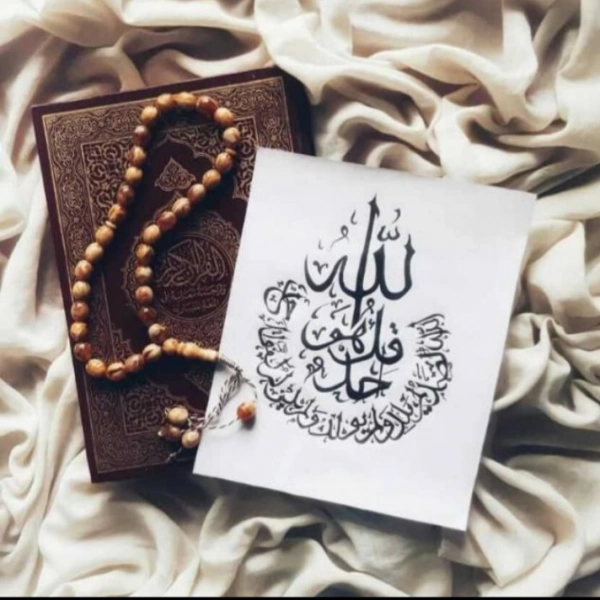 القرآن الكريم
قل هو الله أحد
الله الصمد لم يلد ولم يولد ولم يكن له كفوا أحد